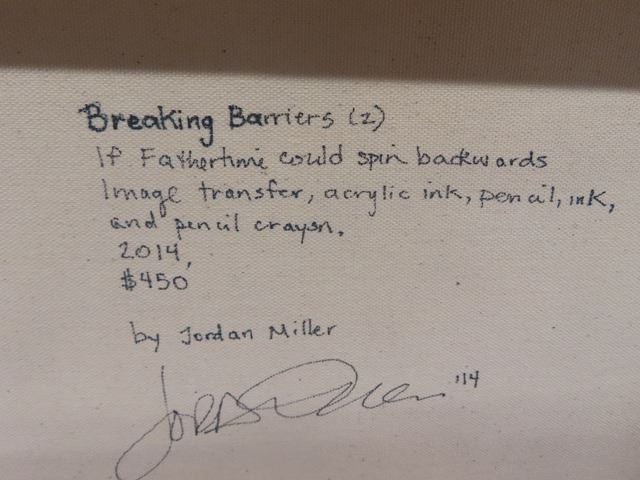 Breaking Barriers (2)
If Fathertime could spin backwards
Image transfer, acrylic ink, pencil, ink,
and pencil crayon.
2014,
$450
by Jordan Miller
'14